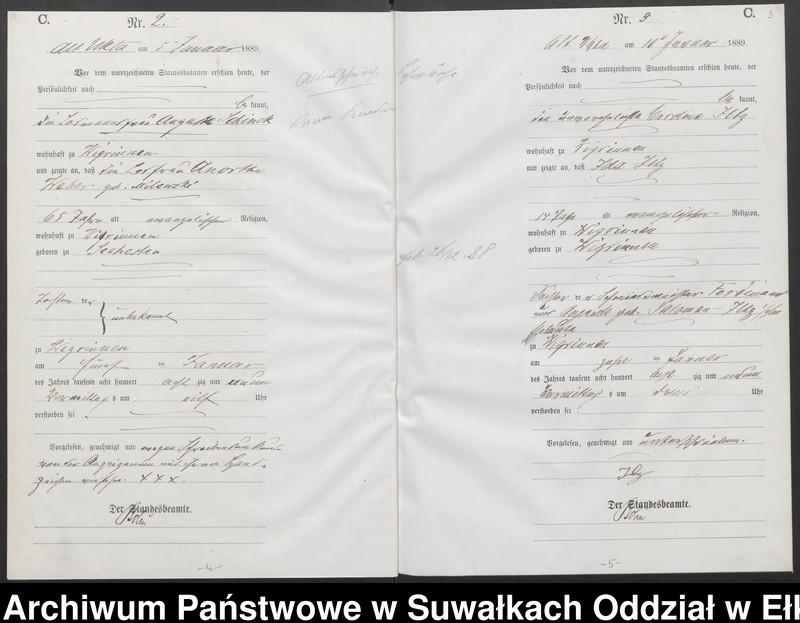 C.
Nr. 2.
Alt Ukta am 5 Januar 1889.
Vor dem unterzeichneten Standesbeamten erschien heute, der
Persönlichkeit nach
be kannt,
die Losmannsfrau Auguste Schinck
wohnhaft zu Wigrinnen
und zeigte an, daß die Losfrau Anorthe
Weber geb. Milewski
68 Jahre alt evangelischer Religion,
wohnhaft zu Wigrinnen
geboren zu Seehesten
Tochter der
unbekannt
zu Wigrinnen
am fünf ten Januar
des Jahres tausend acht hundert acht zig und neun
Vormittags um elf Uhr
verstorben sei
Vorgelesen, genehmigt und wegen Schreibensunkunde
von der Anzeigenden mit ihrem Hand-
zeichen versehen. XXX.
Der Standesbeamte.
-4-
C.
3
Nr. 3
Alt Ukta am 10 Januar 1889.
Vor dem unterzeichneten Standesbeamten erschien heute, der
Persönlichkeit nach
be kannt,
die unverehelichte Caroline Iltz
wohnhaft zu Wigrinnen
und zeigte an, daß Ida Iltz
14 Tage alt evangelischer Religion,
wohnhaft zu Wigrinnen
geboren zu Wigrinnen
Tochter der Schmiedemeister Ferdinand
und Auguste geb. Salomon Iltz'schen
Eheleute
zu Wigrinnen
am zehn ten Januar
des Jahres tausend acht hundert acht zig und neun
Vormittags um drei Uhr
verstorben sei
Vorgelesen, genehmigt und unterschrieben.
Iltz
Der Standesbeamte.
-5-
Archiwum Państwowe w Suwałkach Oddział w Ełk